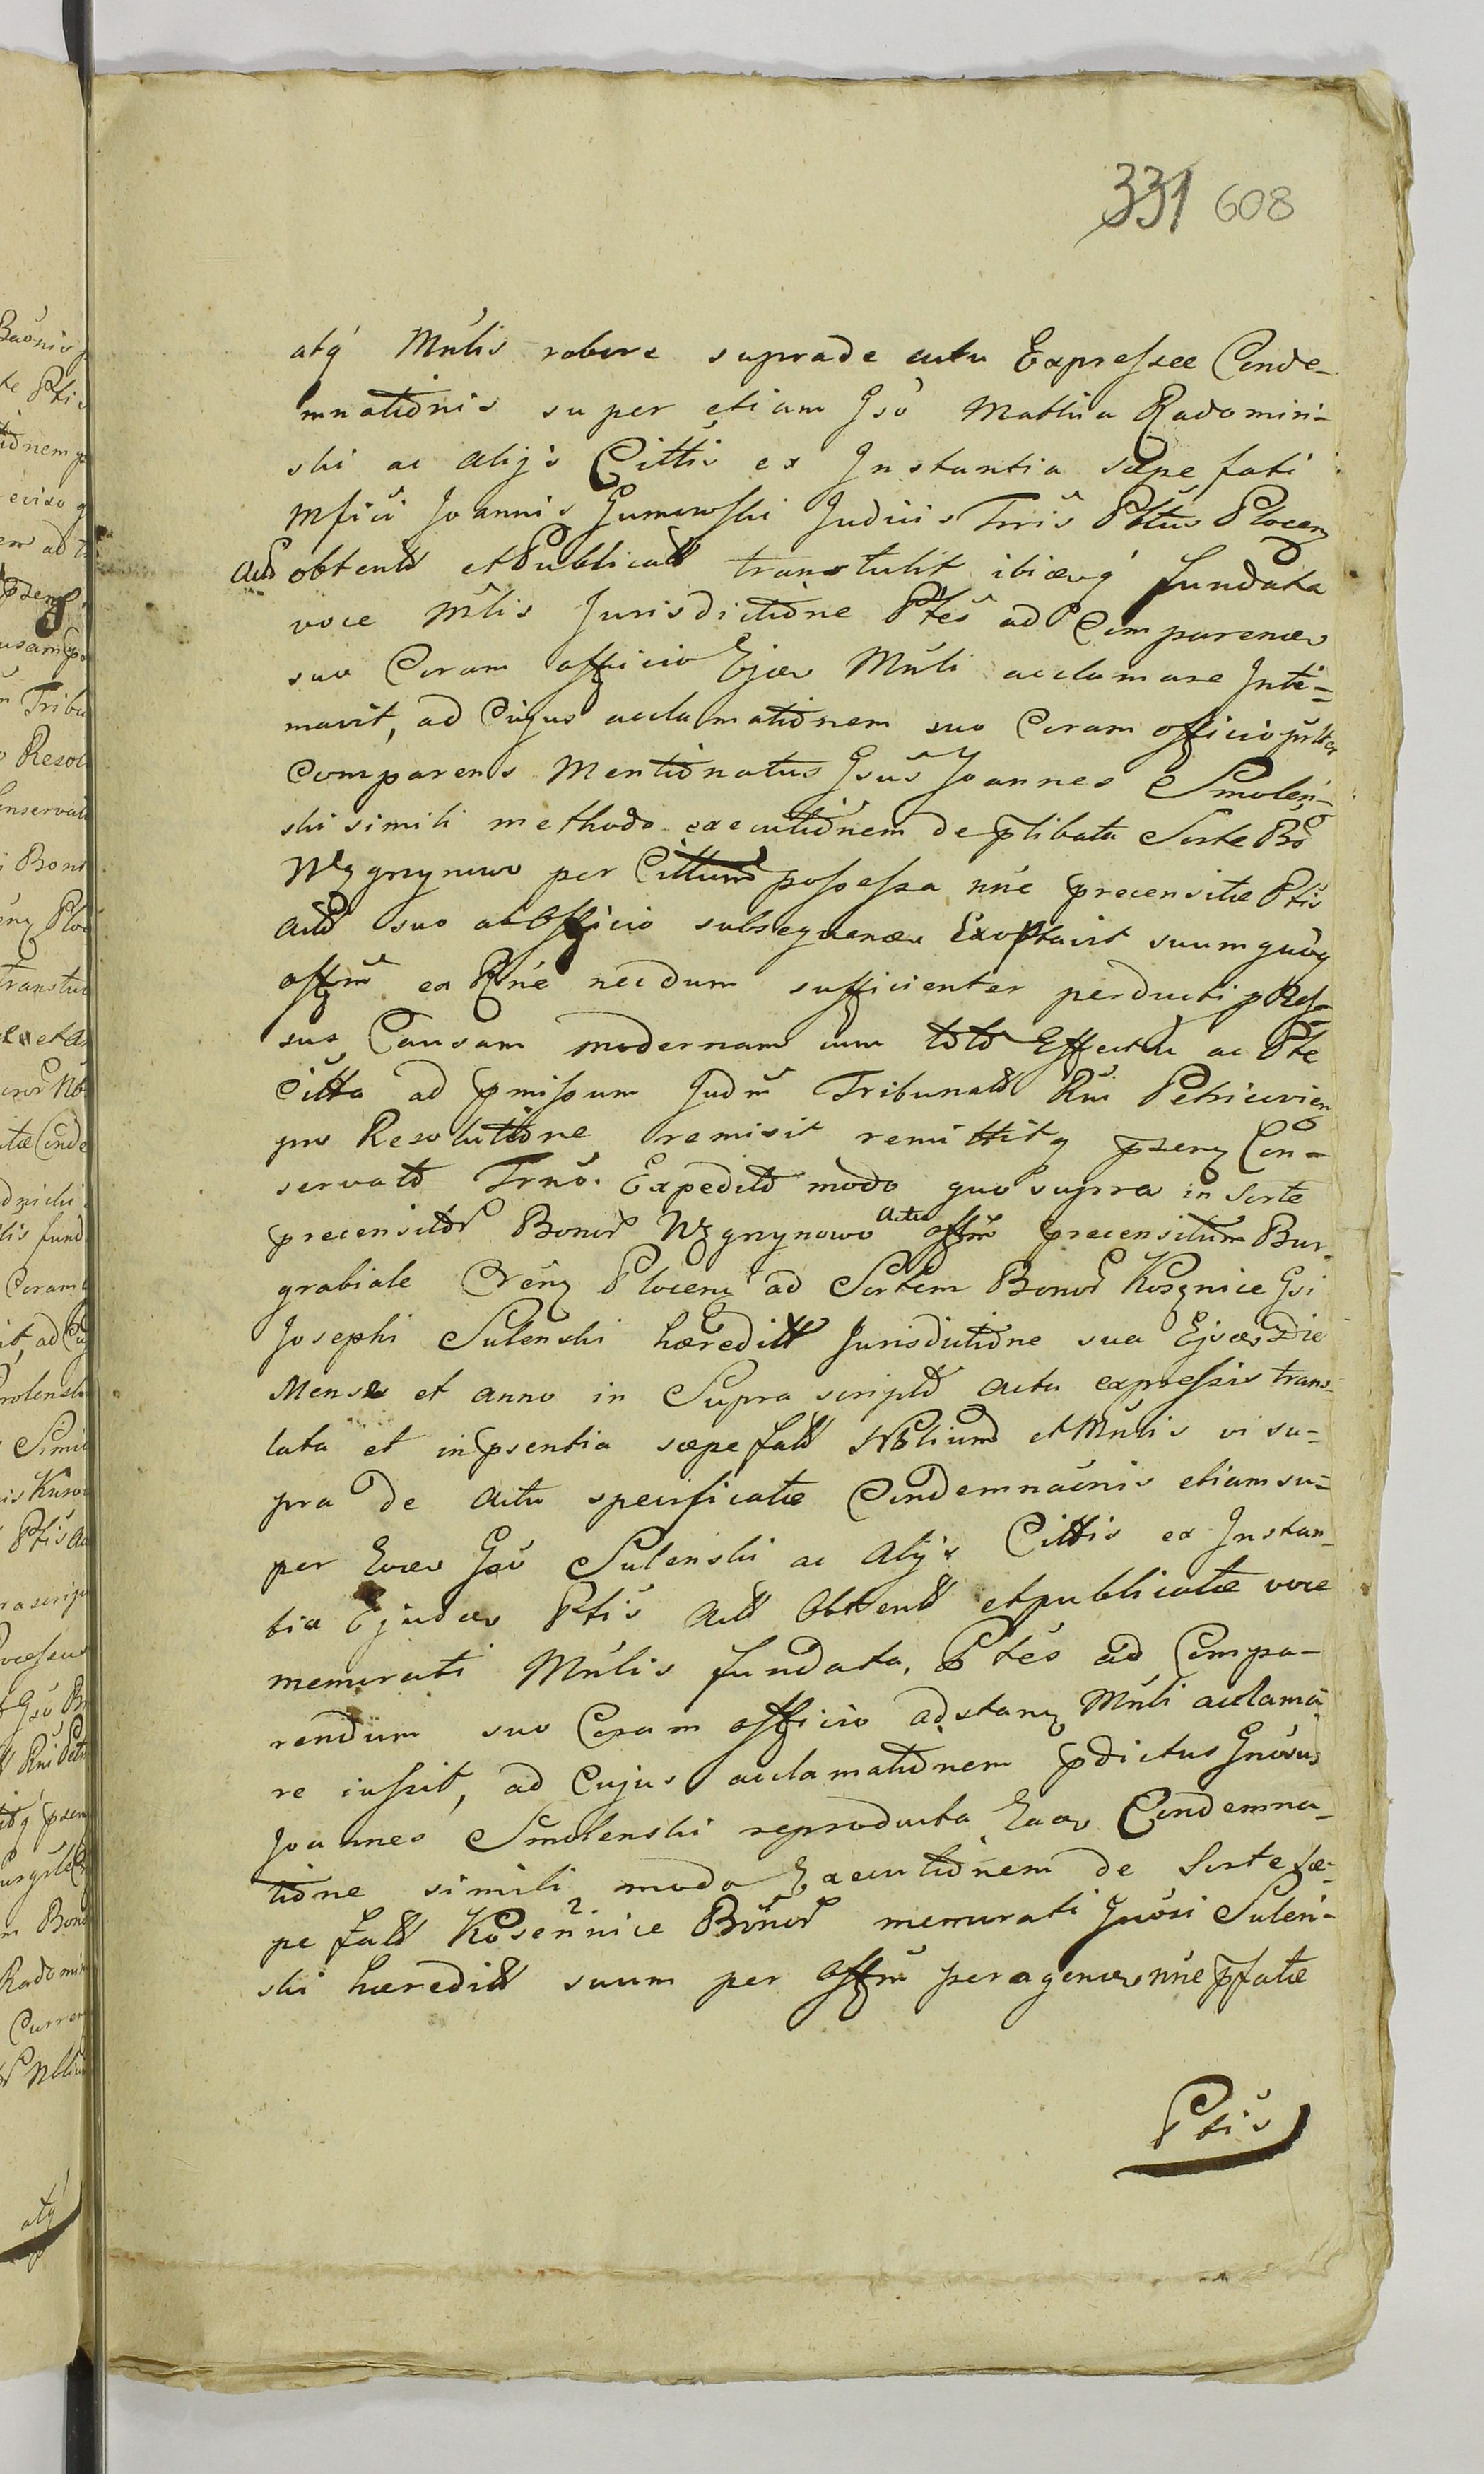 331 608
atq́ Mnlis robore suprade actu Expressee Conde-
mnatiõnis super etiam Gsõ Mathia Radomin-
ski ac alijs Cittis ex Instantia sæpe fati
Mfici Joannis Gumowski Judicis Trris Pltus Plocen
Actt obtentt et Publicatt transtulit ibiæq́ fundata
voce Mlis Jurisdictiõne Ptes ad Comparenæ
suo Coram officio Ejæ Mnli acclamare Inti-
mavit, ad Cujus acclamatiõnem suo Coram officio
Comparens Mentiõnatus Gsus Joannes Smoleń-
ski simili methodo executiõnem de plibata Sorte Bo
Węgrzynowo per Cittum possessa nne precensitæ Ptis
actt suo ab Officio subsequenæ Exoptavit suum quoq
offm ex Rne necdum sufficienter perducti pRes-
sus Causam modernam cum toto Effectu ac Pte
Citta ad pmissum Judm Tribunalt Rni Petricovien
pro Resolutiõne remisit remittitq pseny Con-
servatt Trnõ. Expeditt modo quo supra in Sorte
precensitor Bonor Węgrzynowo Actu offm precensitum Bur-
grabiale Creñ Plocen ad Sortem Bonor Kosznice Gsi
Josephi Sulenski hæreditt Jurisdictiõne sua Ejsæ Die
Mense et anno in Supra scriptt actu expressis trans-
lata et in psentia sæpe fatt Nblium et Mnlis vi su-
pra de actu specificatæ Condemnaõnis etiam su-
per Eoæ Gsõ Sulenski ac Alijs Cittis ex Instan-
tia Ejusdæ Ptis Actt Obtentt et publicatæ voce
memorati Mnlis fundata, Ptes ad Compa-
rendum suo Coram officio adstany Mnli acclama-
re iussit, ad Cujus acclamatiõnem pdictus Gnosus
Joannes Smolenski reproducta Eaæ Condemna-
tiõne simili modo Executiõnem de Sorte sæ-
pe fatt Koseńnice Bonor memorati Gnosi Suleń-
ski hæreditt suum per offm peragenæ nne pfatæ
Ptis